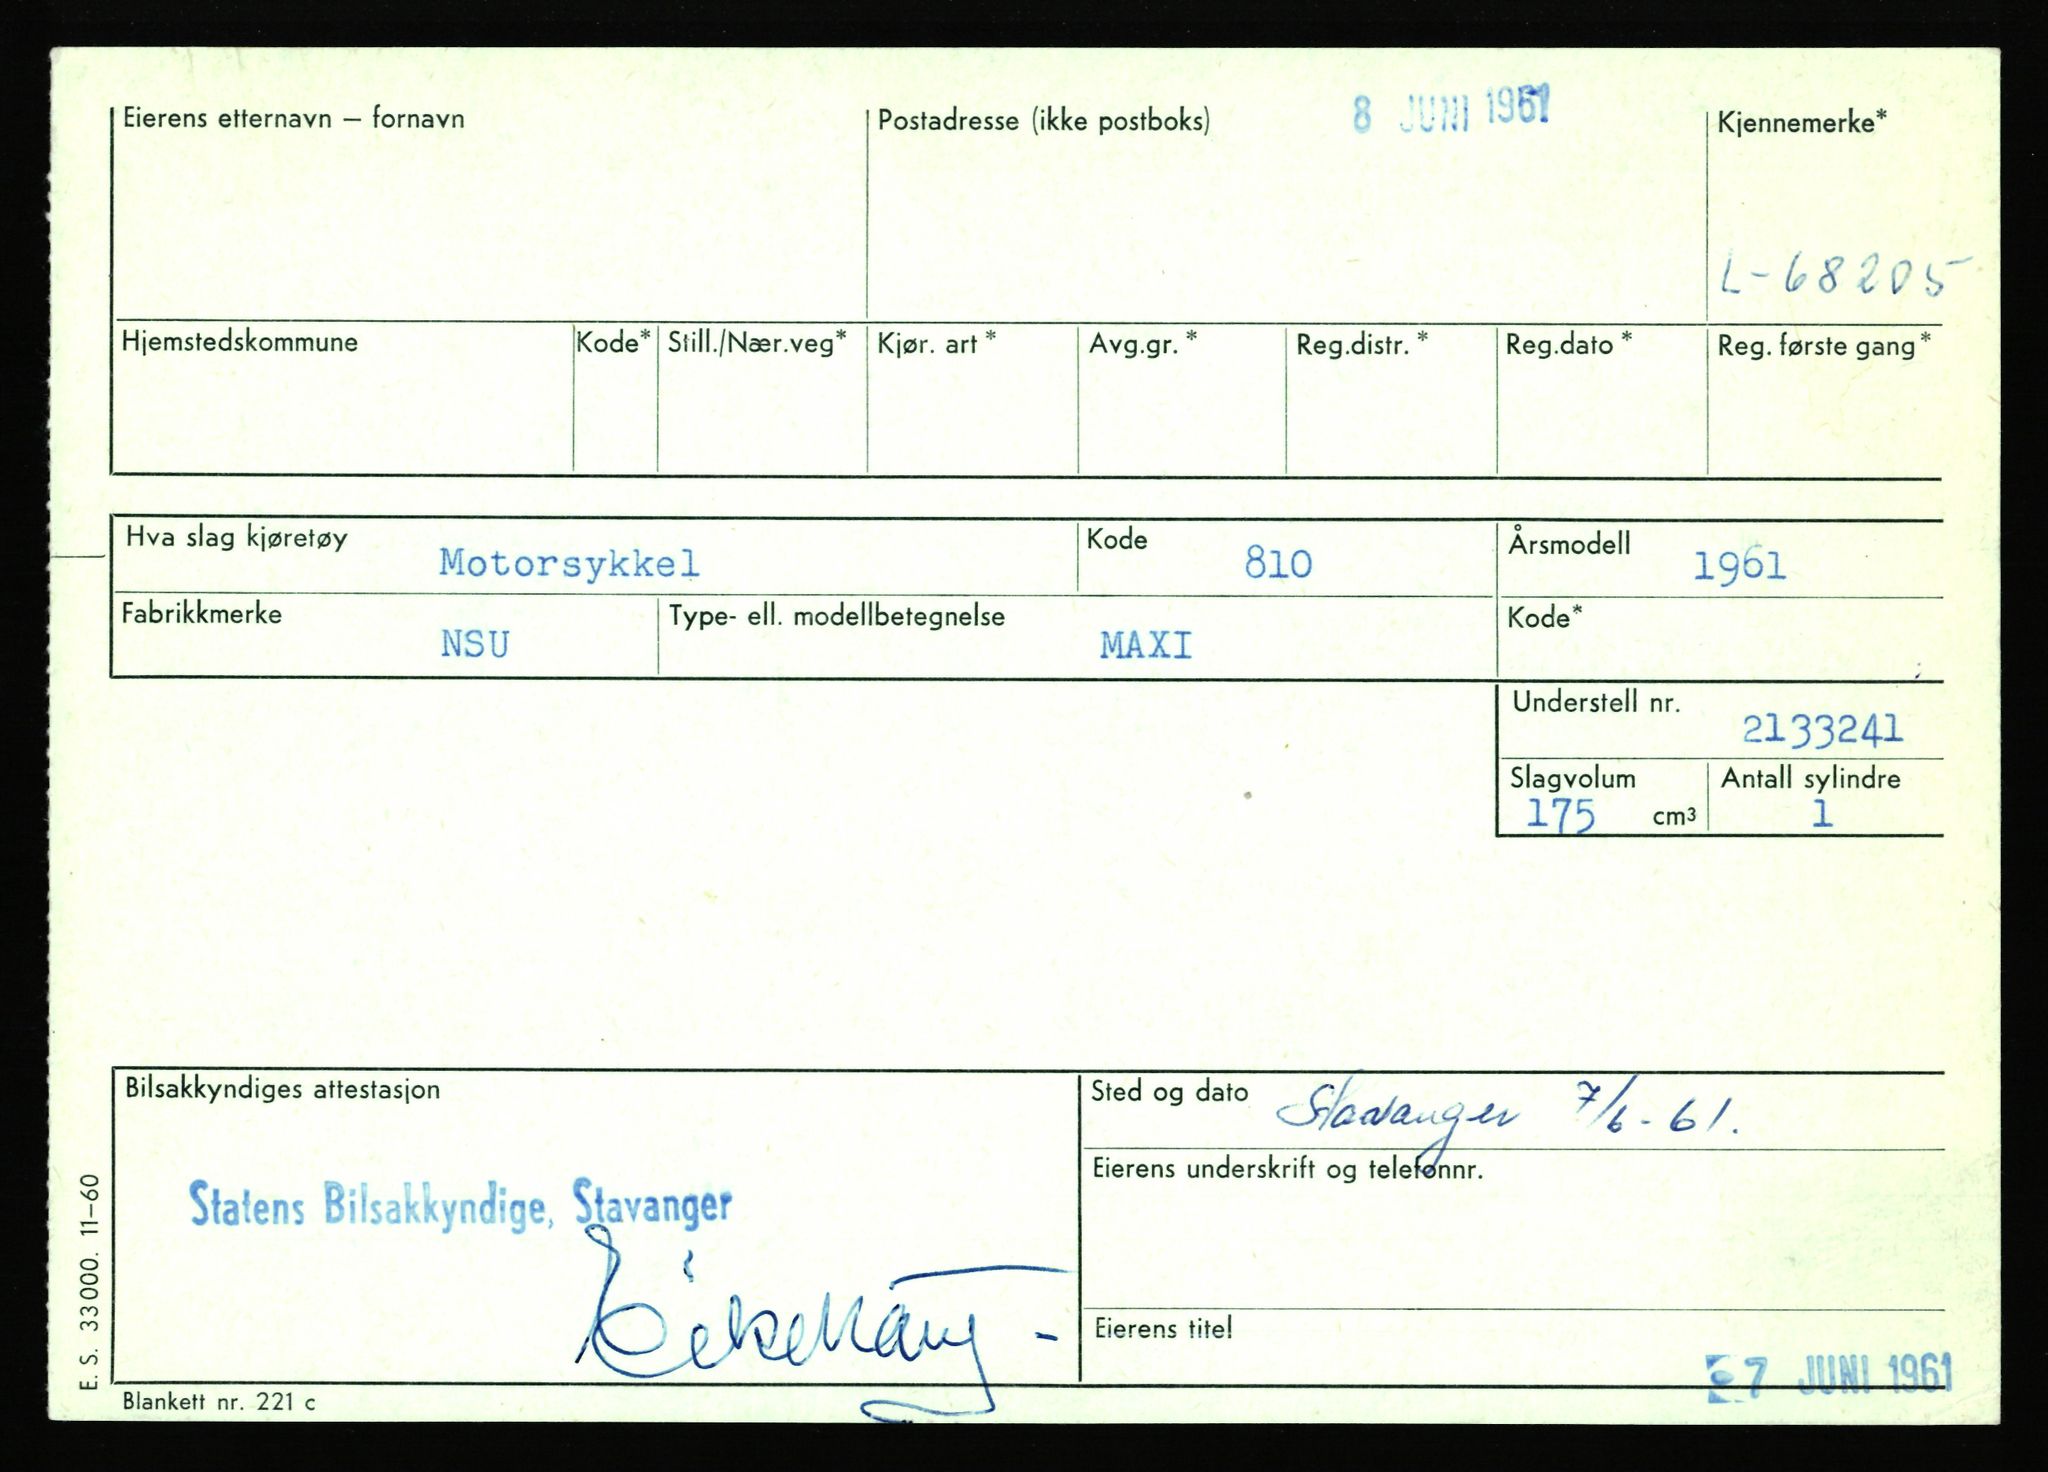 Eierens etternavn – fornavn
Postadresse (ikke postboks)
8 JUNI 1961
Kjennemerke*
L-68205
Hjemstedskommune
Kode*
Still./Nær.veg*
Kjør. art*
Avg.gr.*
Reg.distr.*
Reg.dato*
Reg. første gang*
Hva slag kjøretøy
Motorsykkel
Kode
810
Årsmodell
1961
Fabrikkmerke
NSU
Type- ell. modellbetegnelse
MAXI
Kode*
Understell nr.
2133241
Slagvolum
175 cm³
Antall sylindre
1
Bilsakkyndiges attestasjon
Statens Bilsakkyndige, Stavanger
Sted og dato Stavanger 7/6-61.
Eierens underskrift og telefonnr.
Eierens titel
7 JUNI 1961
E. S. 33000. 11–60
Blankett nr. 221 c